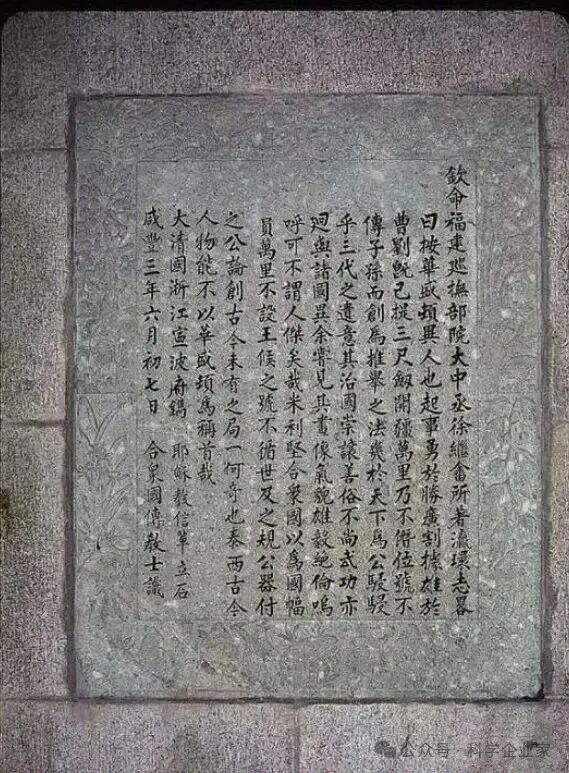 欽命福建巡撫部院大中丞徐繼畬所著瀛環志畧
曰按華盛頓異人也起事勇於勝廣割據雄於
曹劉既已提三尺劍開疆萬里乃不僭位號不
傳子孫而創為推舉之法幾於天下為公駸駸
乎三代之遺意其治國崇讓善俗不尚武功亦
迥與諸國異余嘗見其畫像氣貌雄毅絕倫嗚
呼可不謂人傑矣哉米利堅合眾國以為國幅
員萬里不設王侯之號不循世及之規公器付
之公論創古今未有之局一何奇也泰西古今
人物能不以華盛頓為稱首哉
大清國浙江寧波府鐫 耶穌教信輩立石
咸豐三年六月初七日 合眾國傳教士識
公众号·科学企业家